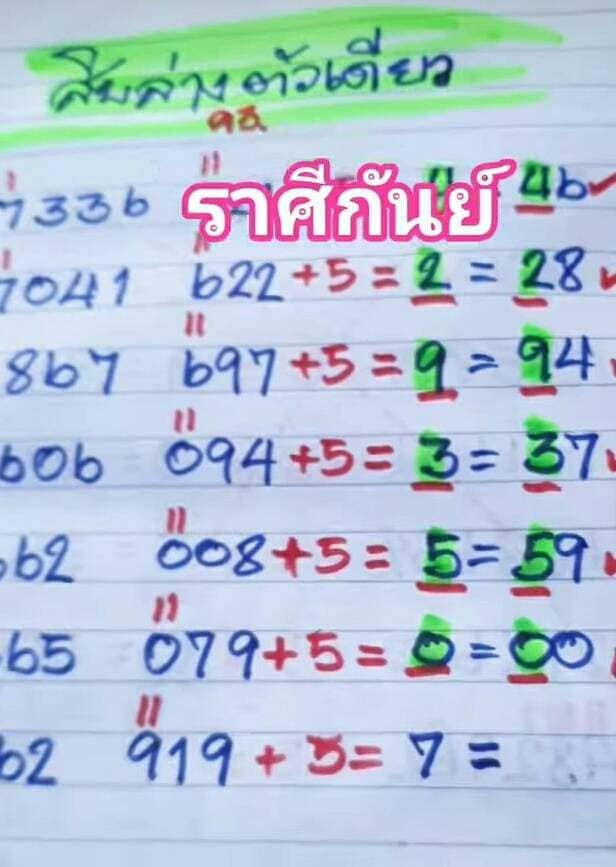 สิบล่างตัวเดียว
7336 ราศีกันย์ 46 ✓
7041 622 +5 = 2 = 28
867 697 +5 = 9 = 94
606 094 +5 = 3 = 37
62 008 +5 = 5 = 59
65 079 +5 = 0 = 00
62 919 + 5 = 7 =